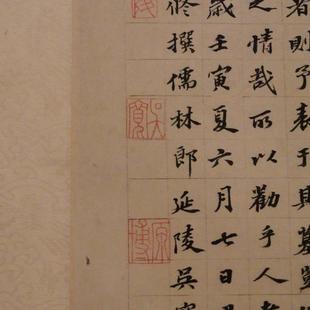 者則予表于其墓豈
之情哉所以勸乎人
歲壬寅夏六月七日
修撰儒林郎延陵吳寬
吳寬
原博